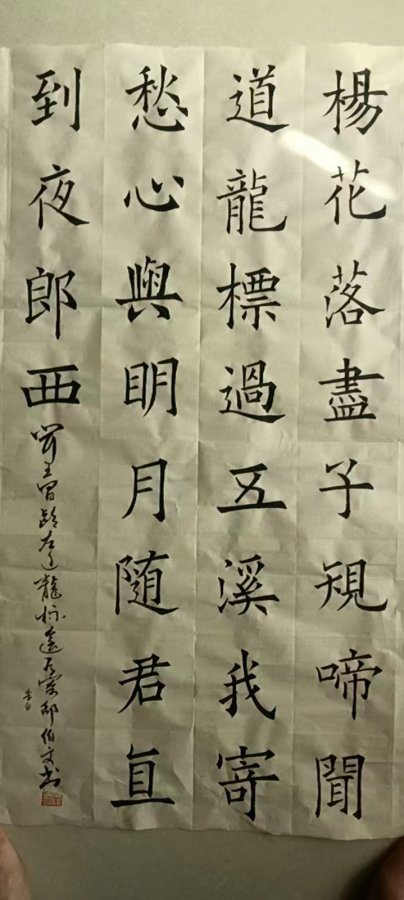 楊花落盡子規啼聞
道龍標過五溪我寄
愁心與眀月随君直
到夜郎西
聞王昌齡左遷龍標遙 邵伯文书
李白